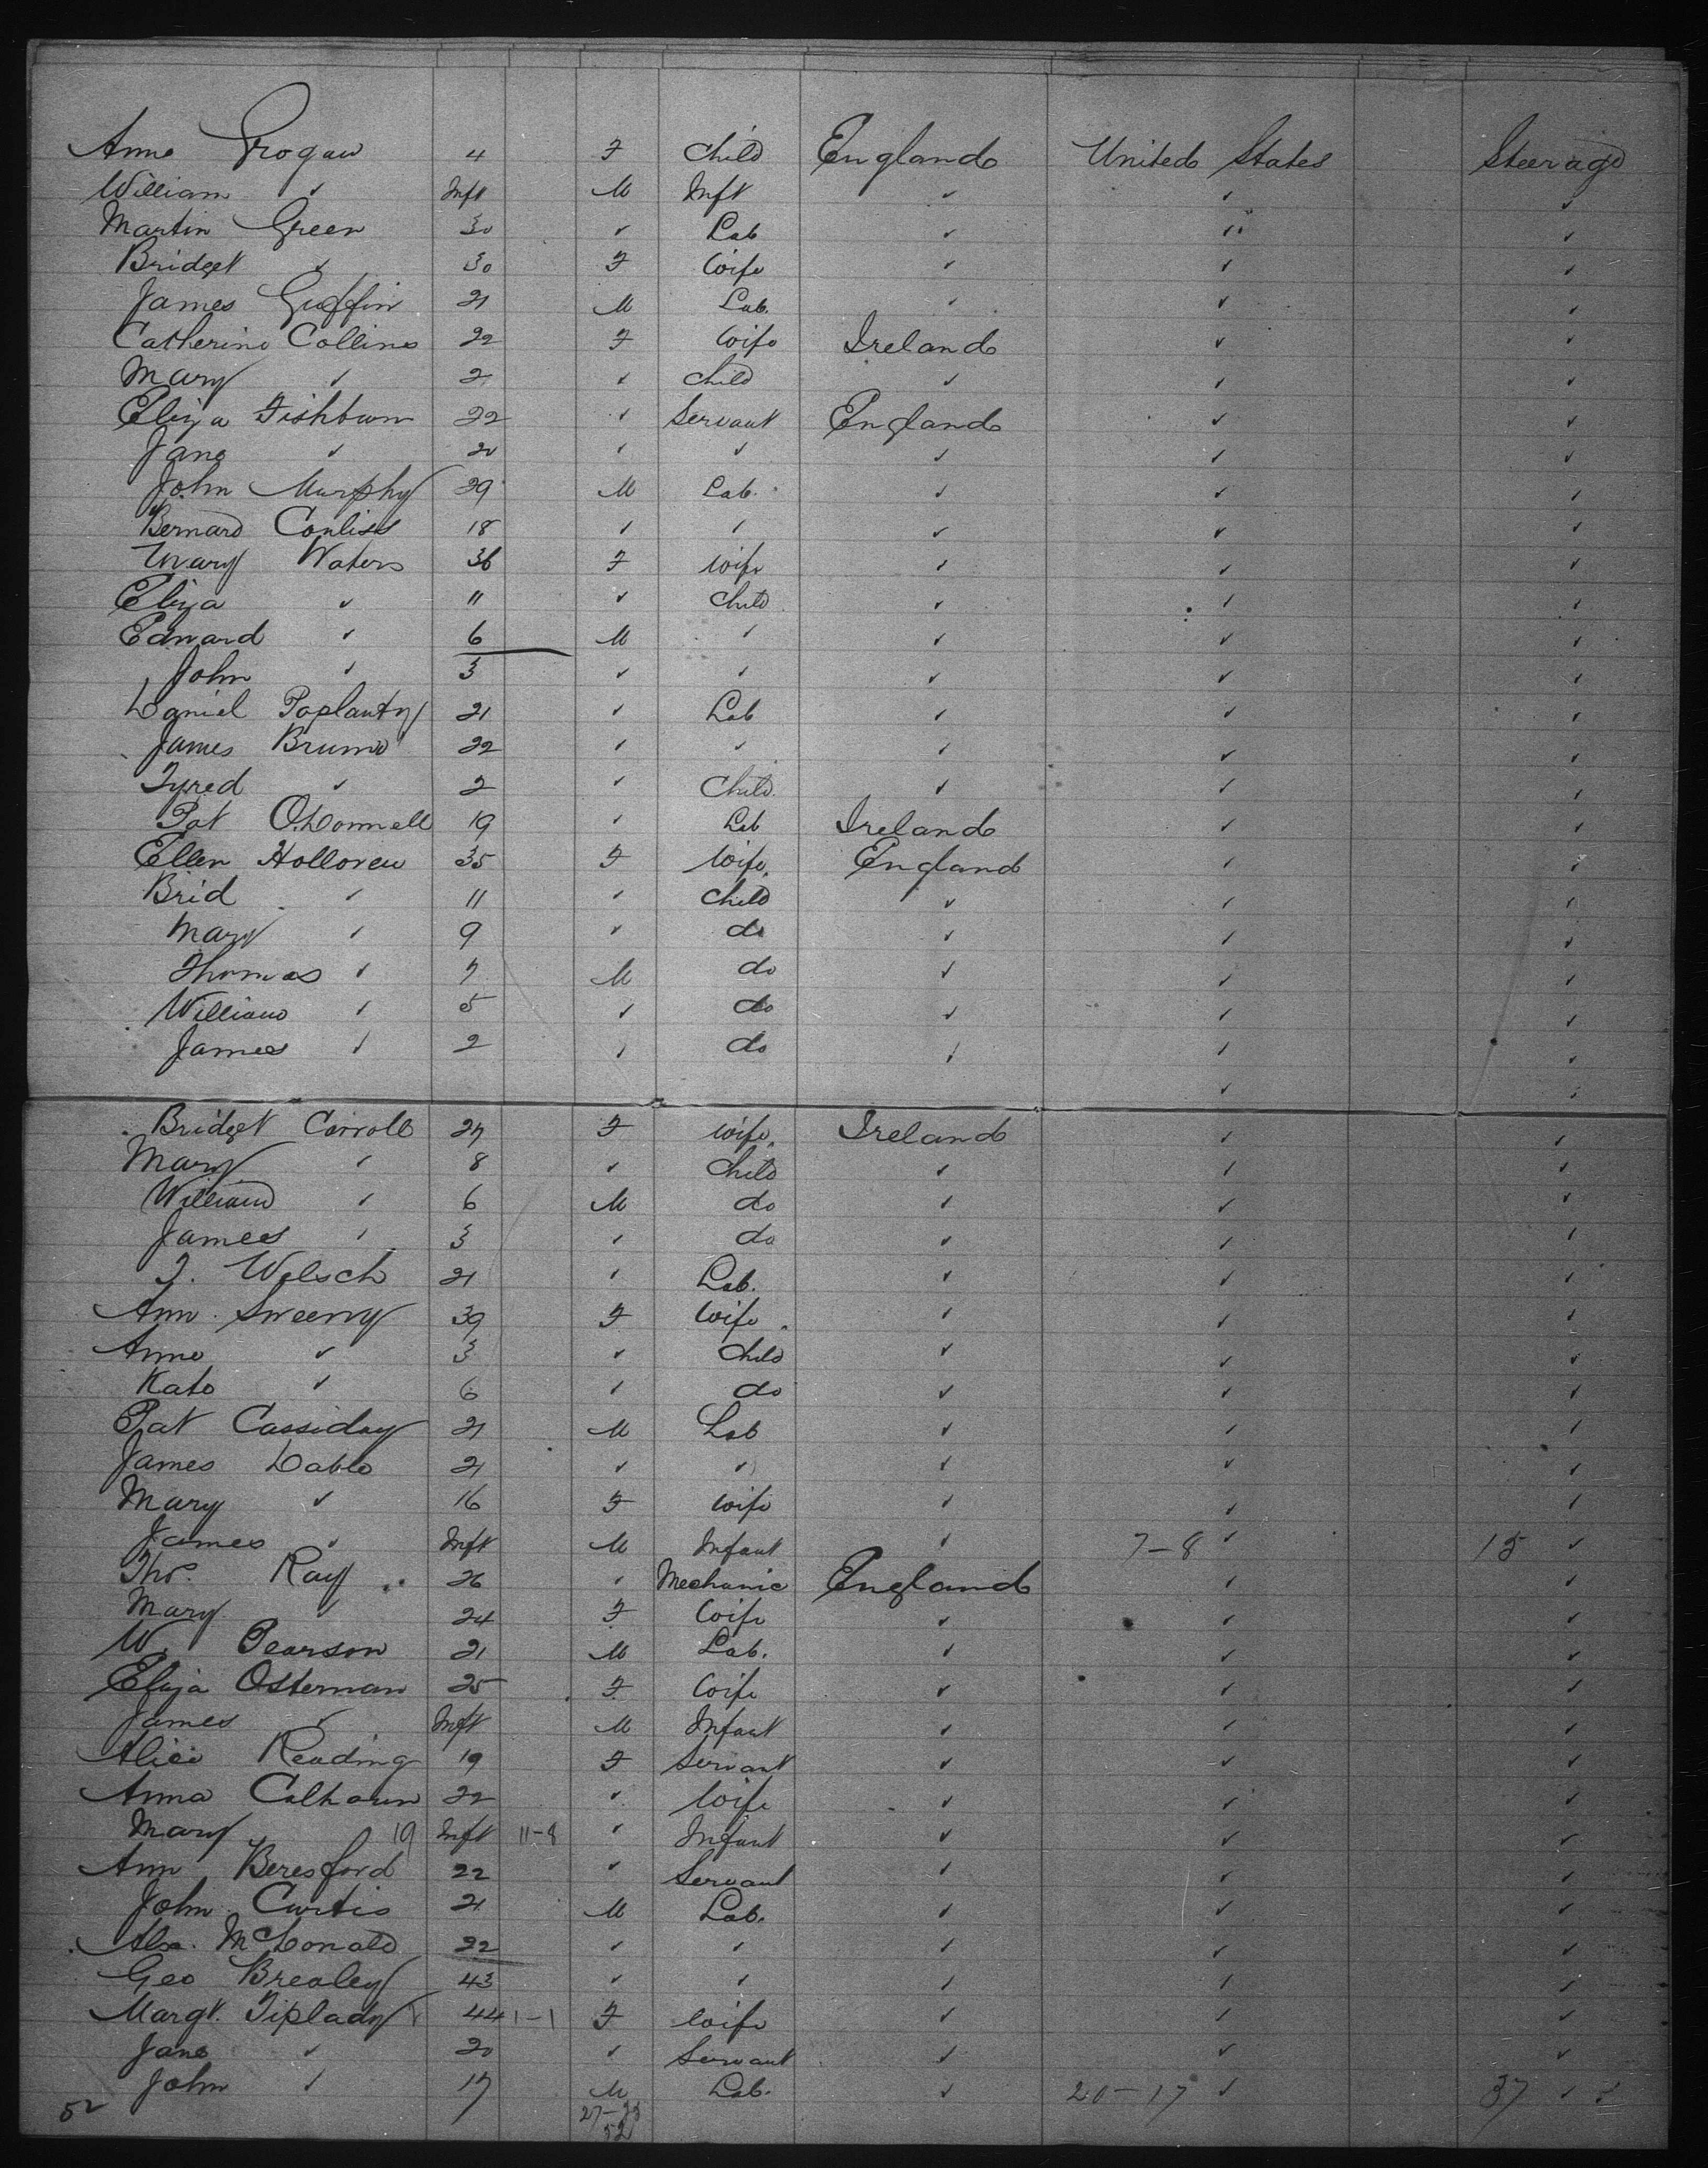 Anne Grogan 4 F Child England United States Steerage
William ✓ Inft M Inft ✓ ✓ ✓
Martin Green 30 ✓ Lab ✓ ✓ ✓
Bridget ✓ 30 F Wife ✓ ✓ ✓
James Griffin 21 M Lab. ✓ ✓ ✓
Catherine Collins 22 F Wife Ireland ✓ ✓
Mary ✓ 2 ✓ Child ✓ ✓ ✓
Eliza Fishburn 22 ✓ Servant England ✓ ✓
Jane ✓ 20 ✓ ✓ ✓ ✓ ✓
John Murphy 29 M Lab. ✓ ✓ ✓
Bernard Conliss 18 ✓ ✓ ✓ ✓ ✓
Mary Waters 36 F Wife ✓ ✓ ✓
Eliza ✓ 11 ✓ Child ✓ ✓ ✓
Edward ✓ 6 M ✓ ✓ ✓ ✓
John ✓ 3 ✓ ✓ ✓ ✓ ✓
Daniel 21 ✓ Lab ✓ ✓ ✓
James 22 ✓ ✓ ✓ ✓ ✓
✓ 2 ✓ Child ✓ ✓ ✓
Pat O.Donnell 19 ✓ Lab Ireland ✓ ✓
Ellen Holloren 35 F Wife. England ✓ ✓
Brid ✓ 11 ✓ Child ✓ ✓ ✓
Mary ✓ 9 ✓ do ✓ ✓ ✓
Thomas ✓ 7 M do ✓ ✓ ✓
William ✓ 5 ✓ do ✓ ✓ ✓
James ✓ 2 ✓ do ✓ ✓ ✓
✓ ✓
Bridget Carroll 27 F Wife. Ireland ✓ ✓
Mary ✓ 8 ✓ Child ✓ ✓ ✓
William ✓ 6 M do ✓ ✓ ✓
James ✓ 3 ✓ do ✓ ✓ ✓
Welsch 21 ✓ Lab. ✓ ✓ ✓
Ann Sweeny 39 F Wife ✓ ✓ ✓
Anne ✓ 3 ✓ Child ✓ ✓ ✓
Kate ✓ 6 ✓ do ✓ ✓ ✓
Pat Cassiday 21 M Lab ✓ ✓ ✓
James Dable 21 ✓ ✓ ✓ ✓ ✓
Mary ✓ 16 F Wife ✓ ✓ ✓
James ✓ Inft M Infant ✓ 7-8 ✓ 15 ✓
Thos. Ray 26 ✓ Mechanic England ✓ ✓
Mary ✓ 24 F Wife ✓ ✓ ✓
W. Pearson 21 M Lab. ✓ ✓ ✓
Eliza Osterman 25 F Wife ✓ ✓ ✓
James ✓ Inft M Infant ✓ ✓ ✓
Alice Reading 19 F Servant ✓ ✓ ✓
Anna Calhoun 22 ✓ Wife ✓ ✓ ✓
Mary 19 Inft 11-8 ✓ Infant ✓ ✓ ✓
Ann Beresford 22 ✓ Servant ✓ ✓ ✓
John Curtis 21 M Lab. ✓ ✓ ✓
Alex. McDonald 22 ✓ ✓ ✓ ✓ ✓
Geo Brealey 43 ✓ ✓ ✓ ✓ ✓
Margt. Tiplady 44 1-1 F Wife ✓ ✓ ✓
Jane ✓ 20 ✓ Servant ✓ ✓ ✓
John ✓ 17 M Lab. ✓ 20-17 ✓ 37 ✓ ✓
52 27-25
52